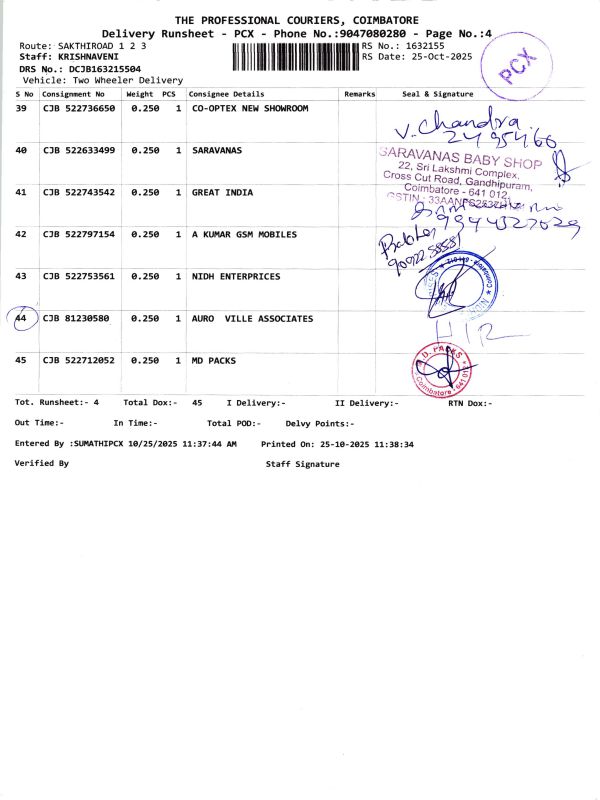 THE PROFESSIONAL COURIERS, COIMBATORE
Delivery Runsheet - PCX - Phone No.:9047080280 - Page No.:4
Route: SAKTHIROAD 1 2 3
RS No.: 1632155
Staff: KRISHNAVENI
RS Date: 25-Oct-2025
DRS No.: DCJB163215504
Vehicle: Two Wheeler Delivery
PCX
S No Consignment No Weight PCS Consignee Details Remarks Seal & Signature
39 CJB 522736650 0.250 1 CO-OPTEX NEW SHOWROOM
V. Chandra
2495466
40 CJB 522633499 0.250 1 SARAVANAS
SARAVANAS BABY SHOP
22, Sri Lakshmi Complex,
Cross Cut Road, Gandhipuram,
Coimbatore - 641 012.
41 CJB 522743542 0.250 1 GREAT INDIA
GSTIN :
9944327029
42 CJB 522797154 0.250 1 A KUMAR GSM MOBILES
43 CJB 522753561 0.250 1 NIDH ENTERPRICES
44 CJB 81230580 0.250 1 AURO VILLE ASSOCIATES
45 CJB 522712052 0.250 1 MD PACKS
M.D. PACKS
Coimbatore - 641 012
Tot. Runsheet:- 4 Total Dox:- 45 I Delivery:- II Delivery:- RTN Dox:-
Out Time:- In Time:- Total POD:- Delvy Points:-
Entered By :SUMATHIPCX 10/25/2025 11:37:44 AM Printed On: 25-10-2025 11:38:34
Verified By Staff Signature